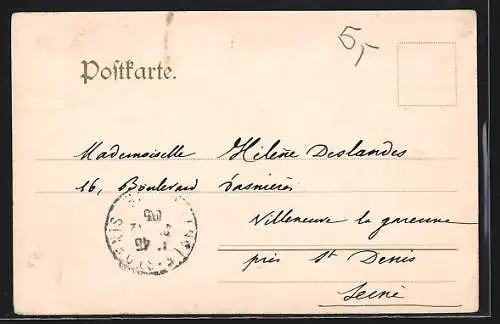 5,-
Postkarte.
Mademoiselle Hélène Deslandes
16, Boulevard d'asnières
Villeneuve la garenne
près St Denis
Seine